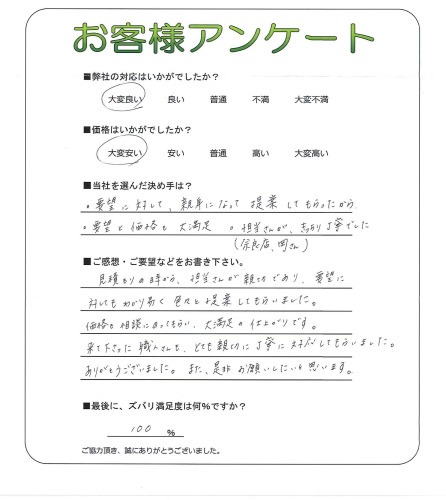 お客様アンケート
■弊社の対応はいかがでしたか?
大変良い 良い 普通 不満 大変不満
■価格はいかがでしたか?
大変安い 安い 普通 高い 大変高い
■当社を選んだ決め手は?
・要望に対して、親身になって提案してもらったから
・要望と価格も大満足 ・担当さんが、きっちり丁寧でした
(奈良店、岡さん)
■ご感想・ご要望などをお書き下さい。
見積もりの時から、担当さんが親切であり、要望に
対してもわかり易く色々と提案してもらいました。
価格も相談にのってもらい、大満足の仕上がりです。
来て下さった職人さんも、とても親切に丁寧に対応してもらいました。
ありがとうございました。また、是非お願いしたいと思います。
■最後に、ズバリ満足度は何%ですか?
100 %
ご協力頂き、誠にありがとうございました。